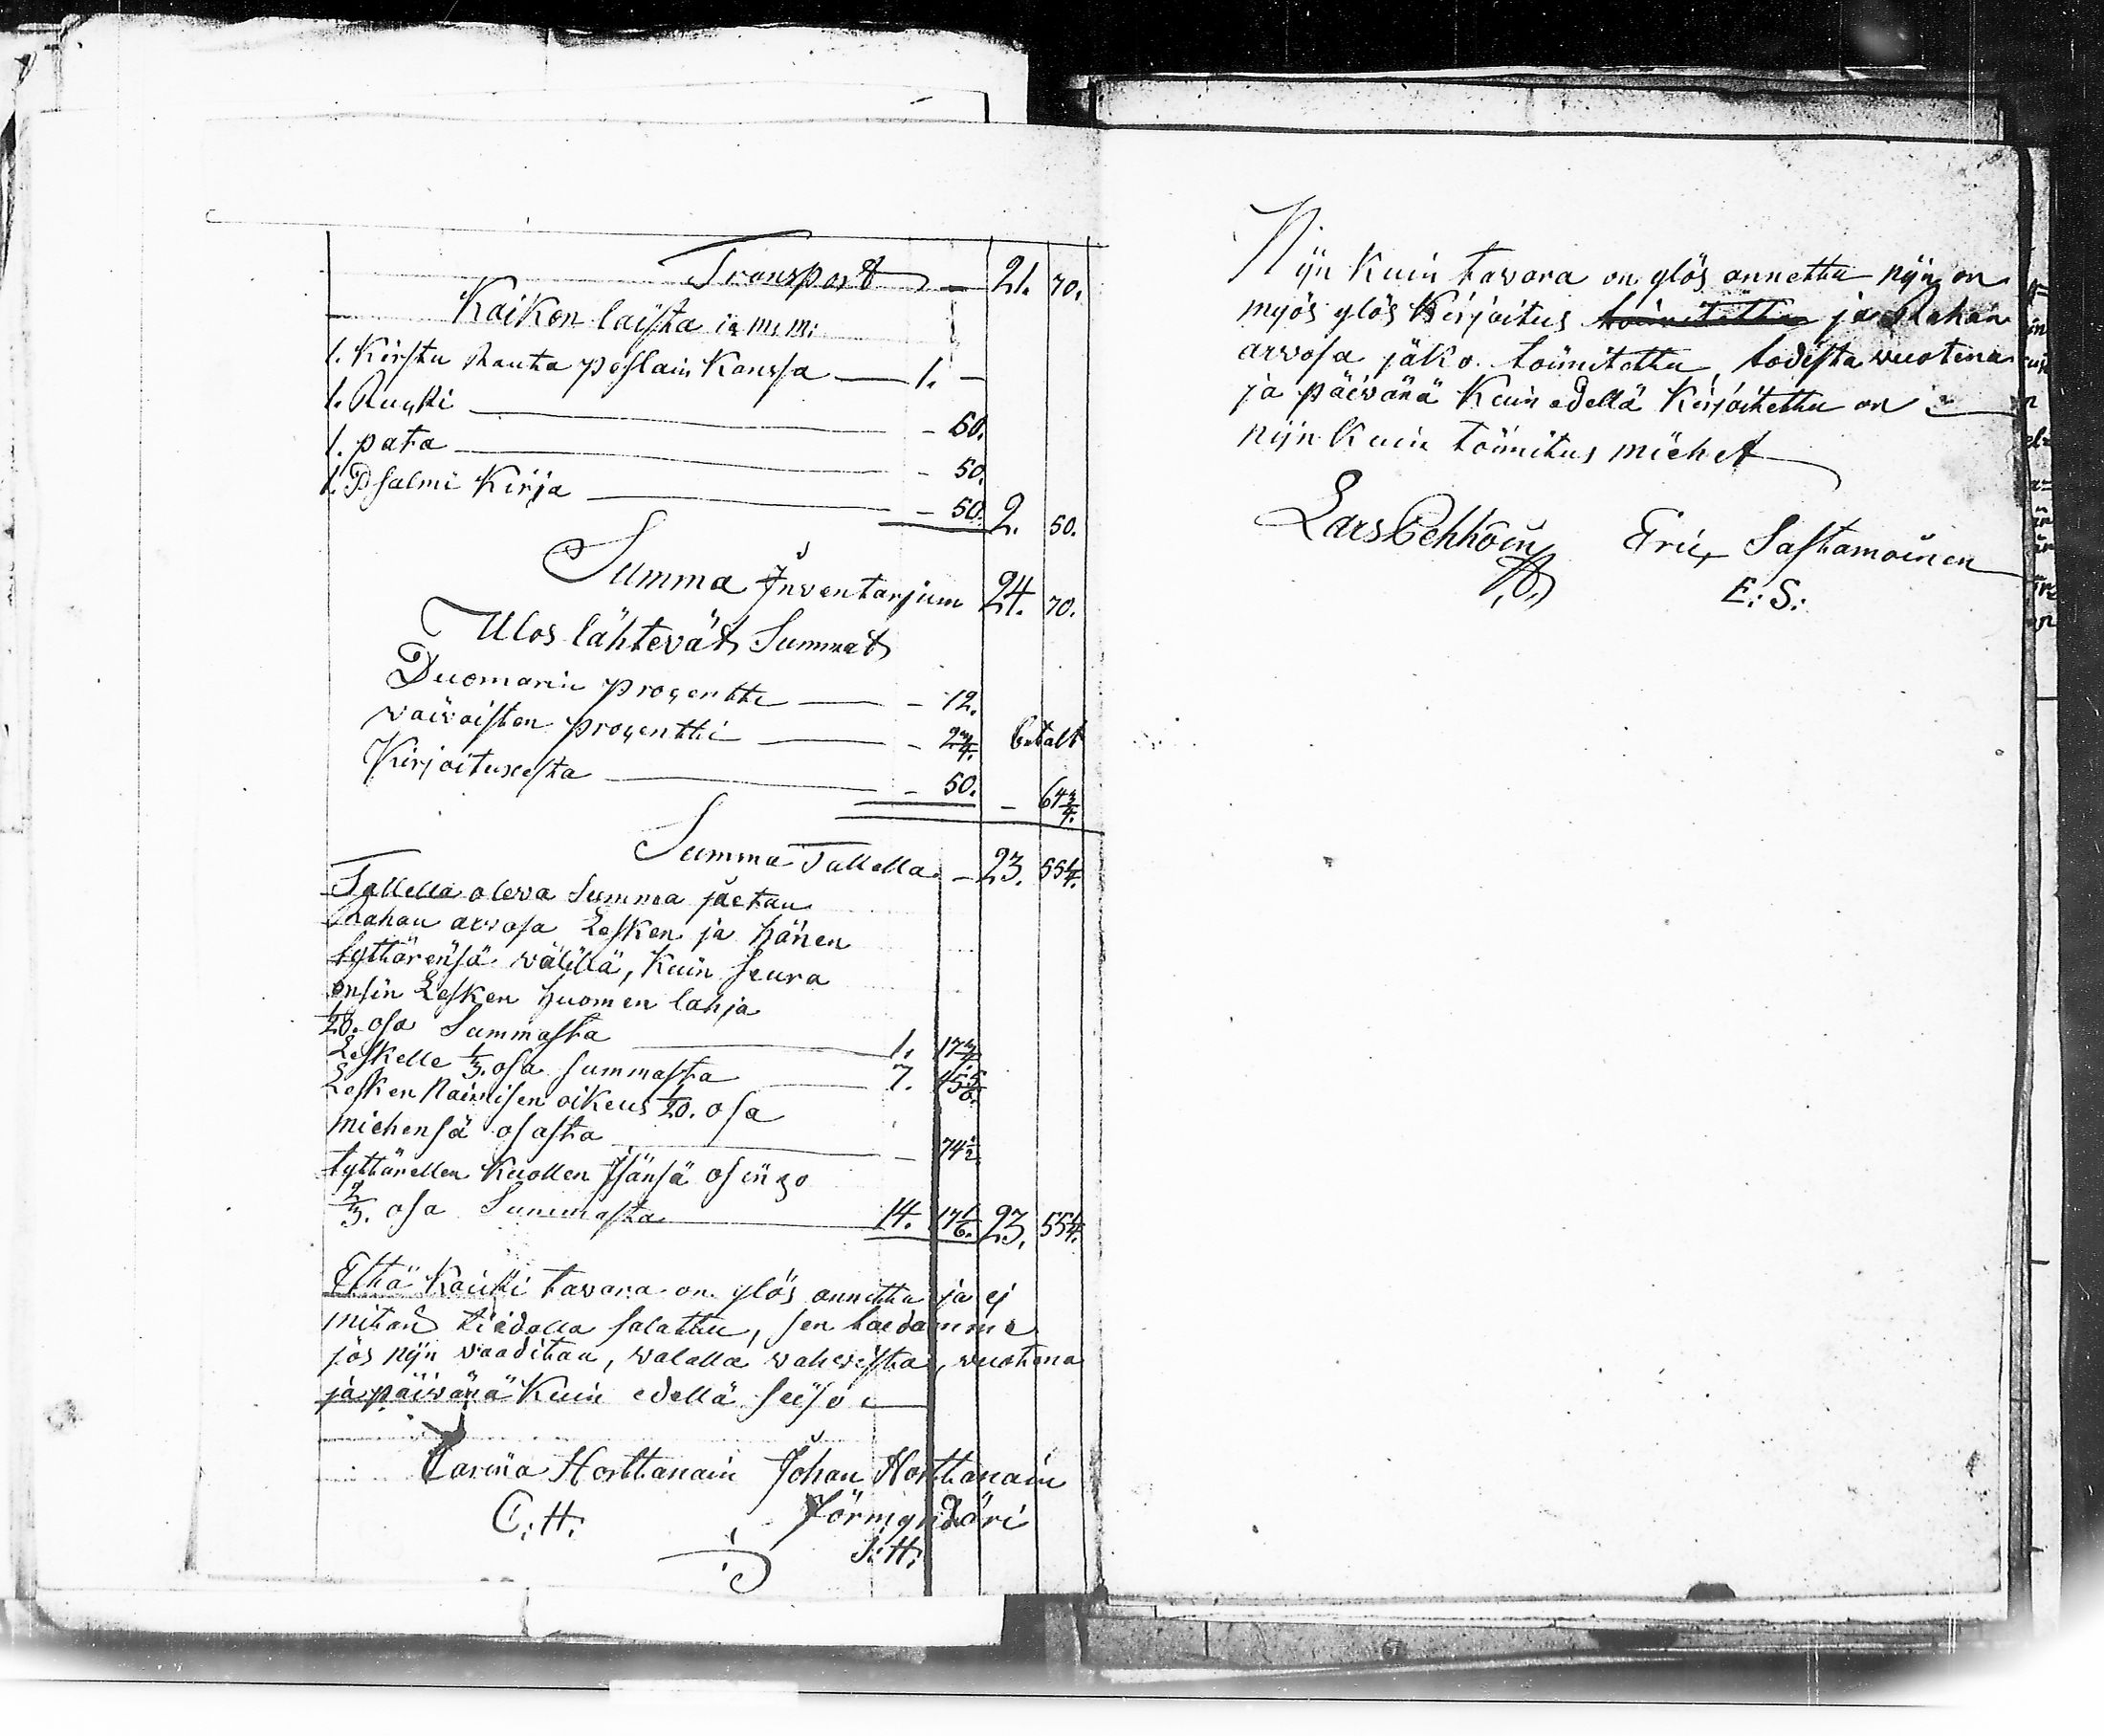 Transport — 21. 70.
Kaiken laista i: m: m:
1. Kirstu Rauta peslain Kanssa — 1. —
1. Rukki — 50.
1. pata — 50.
1. Psalmi Kirja — 50. 2. 50.
Summa Inventarjum 24. 70.
Ulos lähtevät Summat
Duomarin progentti — 12.
waiwaisten progentti — 2 3/4. Betalt
Kirjoituxesta — 50. — 64 3/4.
Summa Tallella — 23. 55 1/4.
Tallella olewa Summa jaetan
Rahan arwosa Lesken ja hänen
tyttärensä wälillä, kuin seura
ensin Lesken huomen lahja
1/20. osa Summasta — 1. 17 3/4
Leskelle 1/3. osa summasta — 7. 45 5/6.
Lesken Naimisen oikeus 1/20. osa
miehensä osasta — 74 1/2
tyttärellen kuollen Isänsä osingo
2/3. osa Summasta — 14. 17 1/6. 23. 55 1/4.
Että kaikki tavara on ylös annettu ja ej
mitan tiedolla salattu, sen taedamme
jos nijn waaditan, walalla wahwista, wuotena
ja päiwänä kuin edellä seiso
Carina Horttanain Johan Horttanain
C. H. Förmyndäri
J: H:
Nijn kuin tawara on ylös annettu nijn on
myös ylös kirjoitus toimitettu ja Rahan
arwosa jako toimitettu, todista wuotena
ja päiwänä kuin edellä kirjoitettu on
nijn kuin toimitus miehet
Lars Pehkoin Eric Sastamoinen
E: S: